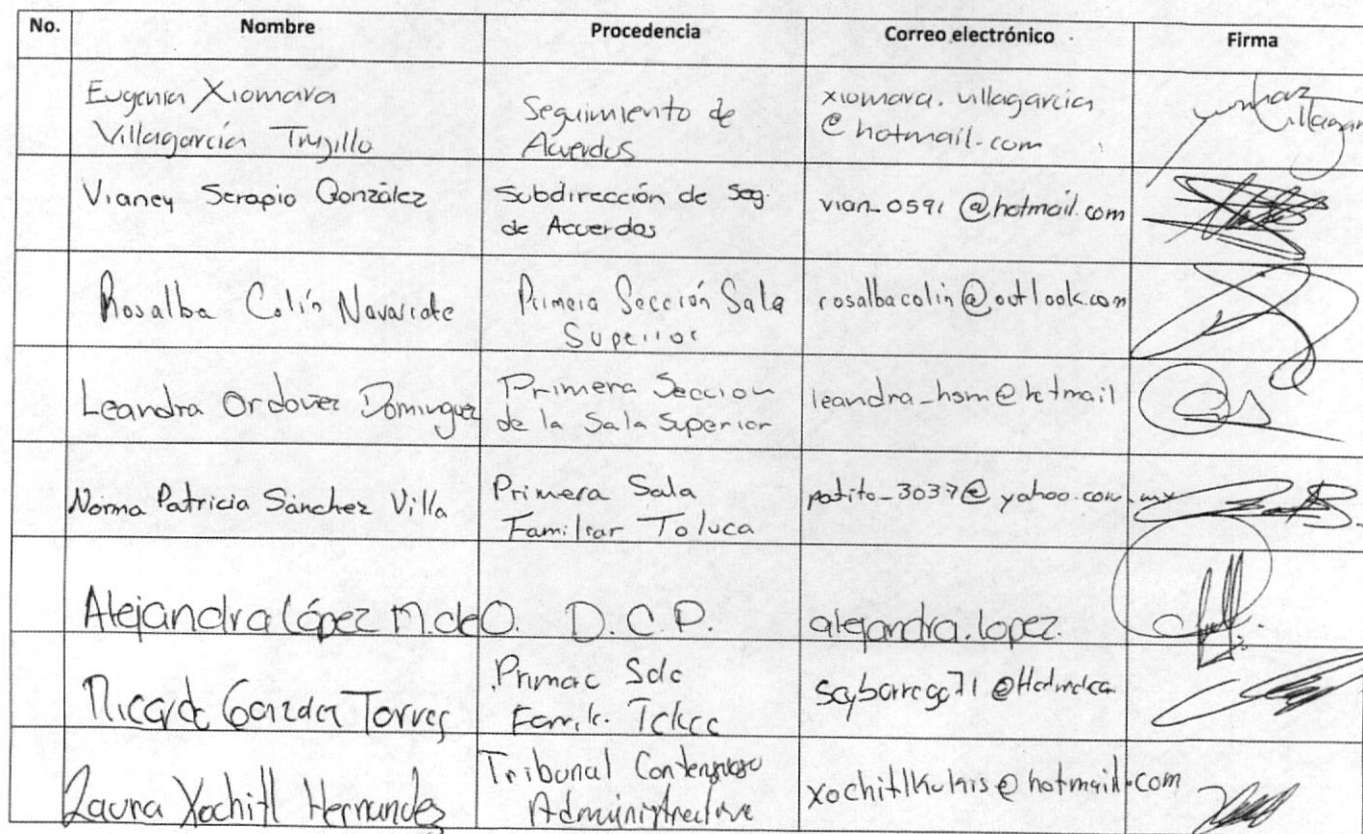 No. Nombre Procedencia Correo electrónico Firma
Eugenia Xiomara
Villagarcía Trujillo
Seguimiento de
Acuerdos
xiomara.villagarcia
@hotmail.com
Vianey Serapio González
Subdirección de Seg.
de Acuerdos
vian_0591@hotmail.com
Rosalba Colín Navarrete
Primera Sección Sala
Superior
rosalbacolin@outlook.com
Leandra Ordoñez Dominguez
Primera Seccion
de la Sala Superior
leandra_hsm@hotmail
Norma Patricia Sánchez Villa
Primera Sala
Familiar Toluca
patito_3037@yahoo.com.mx
Alejandra López M. de O.
D.C.P.
alejandra.lopez.
Torres
Tribunal Contencioso
Administrativo
Laura Xochitl Hernandez
xochitlkukis@hotmail.com